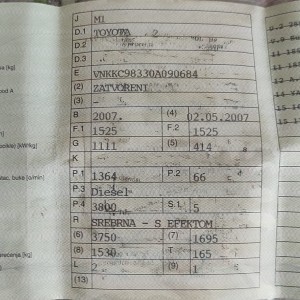 J M1
D.1 TOYOTA 2
D.2
D.3
E VNKKC98330A090684
(2) ZATVORENI
B 2007. (4) 02.05.2007
F.1 1525 F.2 1525
G 1111 (5) 414
K
P.1 1364 P.2 66
P.3 Diesel
P.4 3800 S.1 5
R SREBRNA - S EFEKTOM
(6) 3750 (7) 1695
(8) 1530 T 165
L 2 (9) 1
(13)